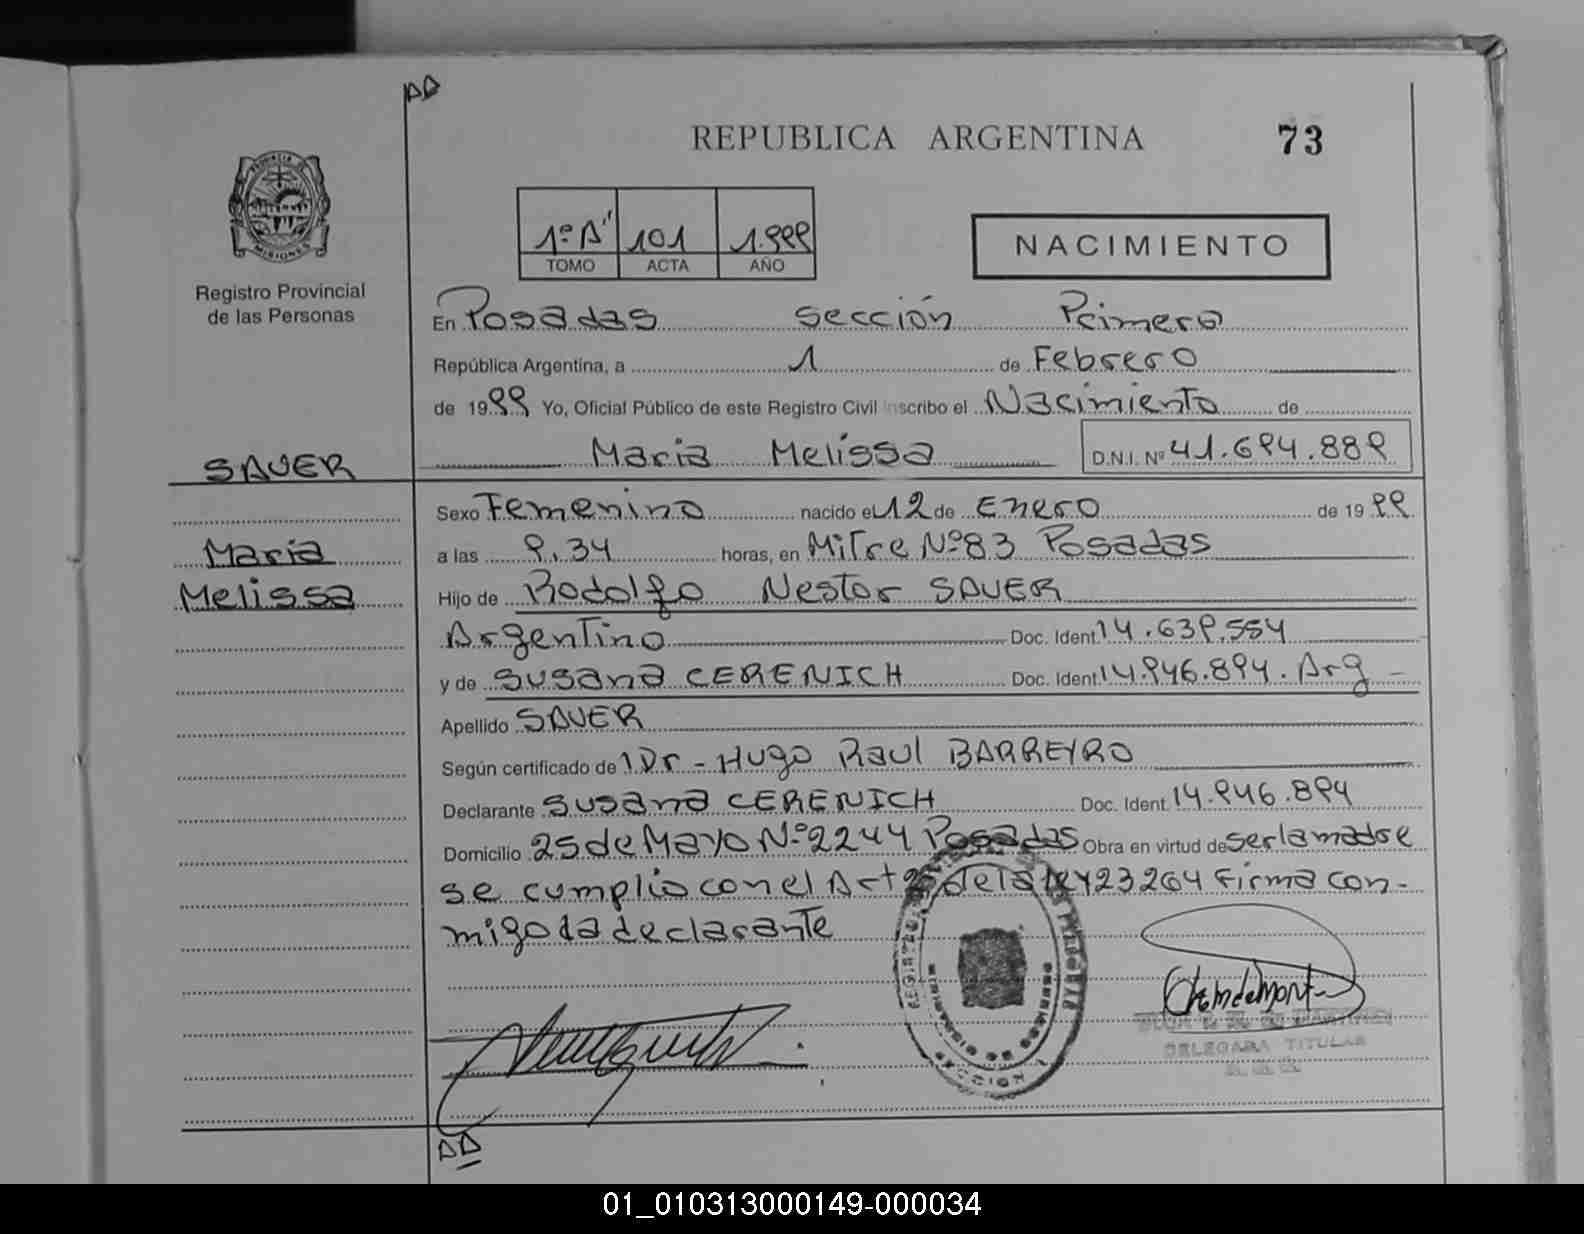 REPUBLICA ARGENTINA 73
PROVINCIA DE
MISIONES
Registro Provincial
de las Personas
1º "A" 101 1.999
TOMO ACTA AÑO
NACIMIENTO
En Posadas sección Primera
República Argentina, a 1 de Febrero
de 1999 Yo, Oficial Público de este Registro Civil inscribo el Nacimiento de
Maria Melissa D.N.I. Nº 41.694.889
SAUER
Sexo Femenino nacido el 12 de Enero de 1999
Maria
a las 9.34 horas, en Mitre Nº 83 Posadas
Melissa
Hijo de Rodolfo Nestor SAUER
Argentino Doc. Ident. 14.639.554
y de Susana CERENICH Doc. Ident. 14.946.894. Arg -
Apellido SAUER
Según certificado de 1 Dr - Hugo Raul BARREYRO
Declarante Susana CERENICH Doc. Ident. 14.946.894
Domicilio 25 de Mayo Nº 2244 Posadas Obra en virtud de ser la madre
se cumplio con el Art 2º de la ley 23264 Firma con-
migo la declarante
DELEGADA TITULAR
01_010313000149-000034